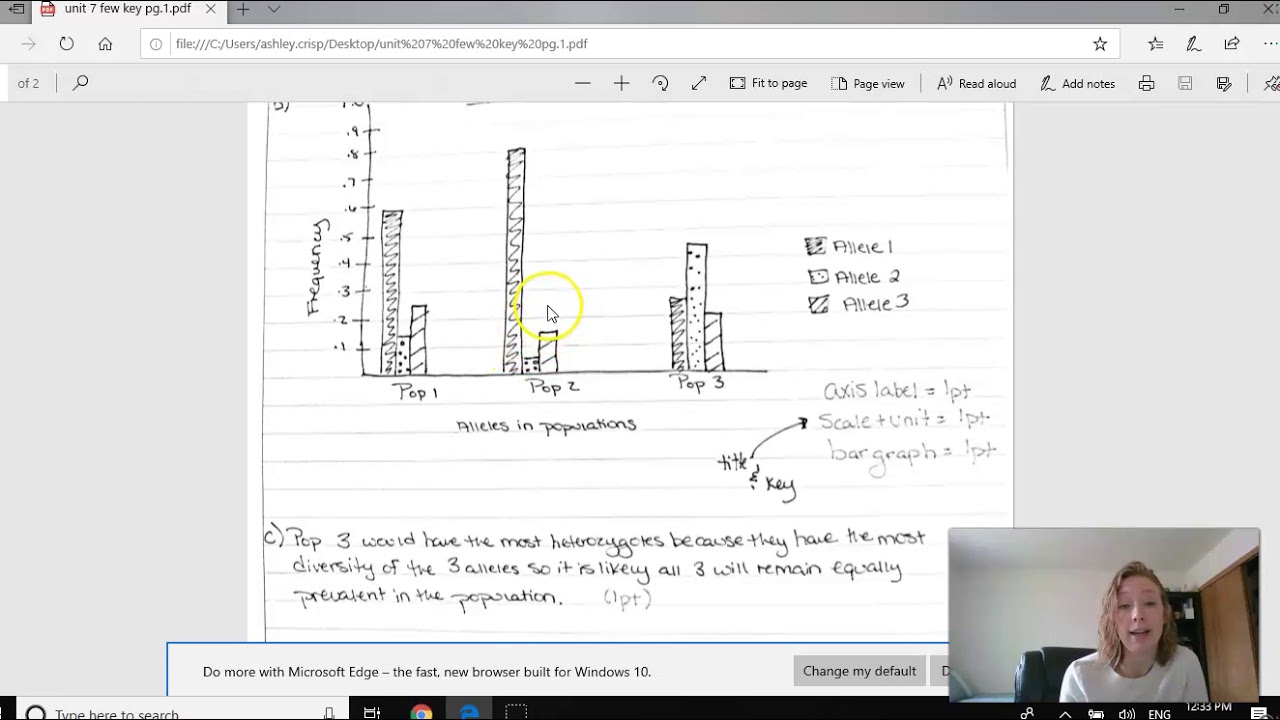 unit 7 few key pg.1.pdf
file:///C:/Users/ashley.crisp/Desktop/unit%207%20few%20key%20pg.1.pdf
of 2
Fit to page
Page view
Read aloud
Add notes
.9
.8
.7
.6
.5
.4
.3
.2
.1
Frequency
Allele 1
Allele 2
Allele 3
Pop 1
Pop 2
Pop 3
Alleles in populations
axis label = 1pt
Scale + unit = 1pt
bar graph = 1pt
title
& key
c) Pop 3 would have the most heterozygotes because they have the most
diversity of the 3 alleles so it is likely all 3 will remain equally
prevalent in the population. (1pt)
Do more with Microsoft Edge – the fast, new browser built for Windows 10.
Change my default
D
Type here to search
ENG
12:33 PM